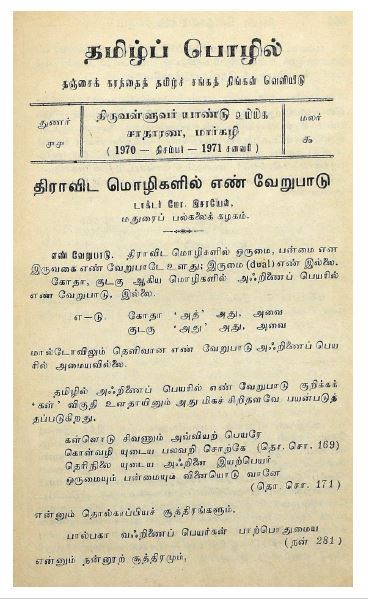 தமிழ்ப் பொழில்
தஞ்சைக் கரந்தைத் தமிழ்ச் சங்கத் திங்கள் வெளியீடு
துணர் ௪௬
திருவள்ளுவர் யாண்டு
சாதாரண, மார்கழி
( 1970 — திசம்பர் — 1971 சனவரி )
மலர் ௯
திராவிட மொழிகளில் எண் வேறுபாடு
டாக்டர் மோ. இசரயேல்,
மதுரைப் பல்கலைக் கழகம்.
எண் வேறுபாடு. திராவிட மொழிகளில் ஒருமை, பன்மை என
இருவகை எண் வேறுபாடே உளது; இருமை (dual) எண் இல்லை.
கோதா, குடகு ஆகிய மொழிகளில் அஃறிணைப் பெயரில்
எண் வேறுபாடு. இல்லை.
எ—டு. கோதா ‘அத்’ அது, அவை
குடகு ‘அது’ அது, அவை
மால்டோவிலும் தெளிவான எண் வேறுபாடு அஃறிணைப் பெய
ரில் அமையவில்லை.
தமிழில் அஃறிணைப் பெயரில் எண் வேறுபாடு குறிக்கக்
‘கள்’ விகுதி உளதாயினும் அது மிகச் சிறிதளவே பயன்படுத்
தப்படுகிறது.
கள்ளொடு சிவணும் அவ்வியற் பெயரே
கொள்வழி யுடைய பலவறி சொற்கே (தொ. சொ. 169)
தெரிநிலை யுடைய அஃறிணை இயற்பெயர்
ஒருமையும் பன்மையும் வினையொடு வானே
(தொ. சொ. 171)
என்னும் தொல்காப்பியச் சூத்திரங்களும்,
பால்பகா வஃறிணைப் பெயர்கள் பாற்பொதுமைய
(நன் 281)
என்னும் நன்னூற் சூத்திரமும்,